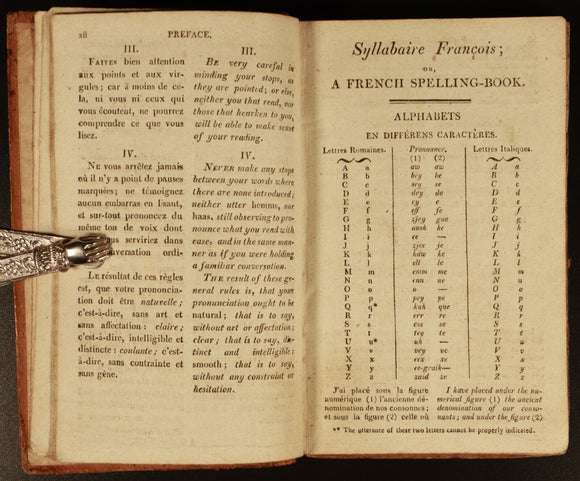 xii PREFACE.
III.
FAITES bien attention
aux points et aux vir-
gules; car à moins de ce-
la, ni vous ni ceux qui
vous écoutent, ne pourrez
comprendre ce que vous
lisez.
IV.
NE vous arrêtez jamais
où il n'y a point de pauses
marquées; ne témoignez
aucun embarras en lisant,
et sur-tout prononcez du
même ton de voix dont
serviriez dans
ordi-
Le résultat de ces règles
est, que votre prononcia-
tion doit être naturelle;
c'est-à-dire, sans art et
sans affectation: claire;
c'est-à-dire, intelligible et
distincte: coulante; c'est-
à-dire, sans contrainte et
sans gêne.
III.
BE very careful in
minding your stops, as
they are pointed; or else,
neither you that read, nor
those that hearken to you,
will be able to make sense
of your reading.
IV.
NEVER make any stops
between your words where
there are none introduced;
neither utter hemms, nor
haas, still observing to pro-
nounce what you read with
ease, and in the same man-
ner as if you were holding
a familiar conversation.
THE result of these ge-
neral rules is, that your
pronunciation ought to be
natural; that is to say,
without art or affectation;
clear; that is to say, dis-
tinct and intelligible:
smooth; that is to say,
without any constraint or
hesitation.
Syllabaire François;
or,
A FRENCH SPELLING-BOOK.
ALPHABETS
EN DIFFÉRENS CARACTÈRES.
Lettres Romaines. Prononce, Lettres Italiques.
(1) (2)
A a aw aw A a
B b bey be B b
C c sey se C c
D d dey de D d
E e ey e E e
F f eff fe F f
G g zjey gue G g
H h aush he H h
I i ee — I i
J j zjee je J j
K k kaw ke K k
L l ell le L l
M m emm me M m
N n enn ne N n
O o o — O o
P p pey pe P p
Q q* kuh que Q q
R r err re R r
S s ess se S s
T t tey te T t
U u* uh — U u
V v vey ve V v
X x eex xe X x
Y y ee-graik— Y y
Z z zaid ze Z z
J'ai placé sous la figure
numérique (1) l'ancienne dé-
nomination de nos consonnes;
et sous la figure (2) celle où
I have placed under the nu-
merical figure (1) the ancient
denomination of our conso-
nants; and under the figure (2)
** The utterance of these two letters cannot be properly indicated.